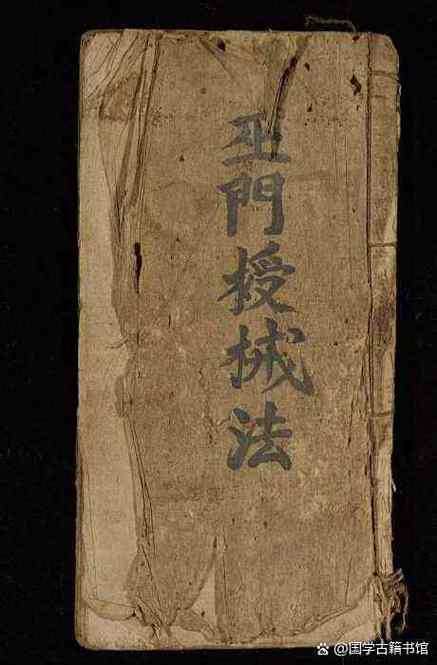 巫門授械法
@国学古籍书馆